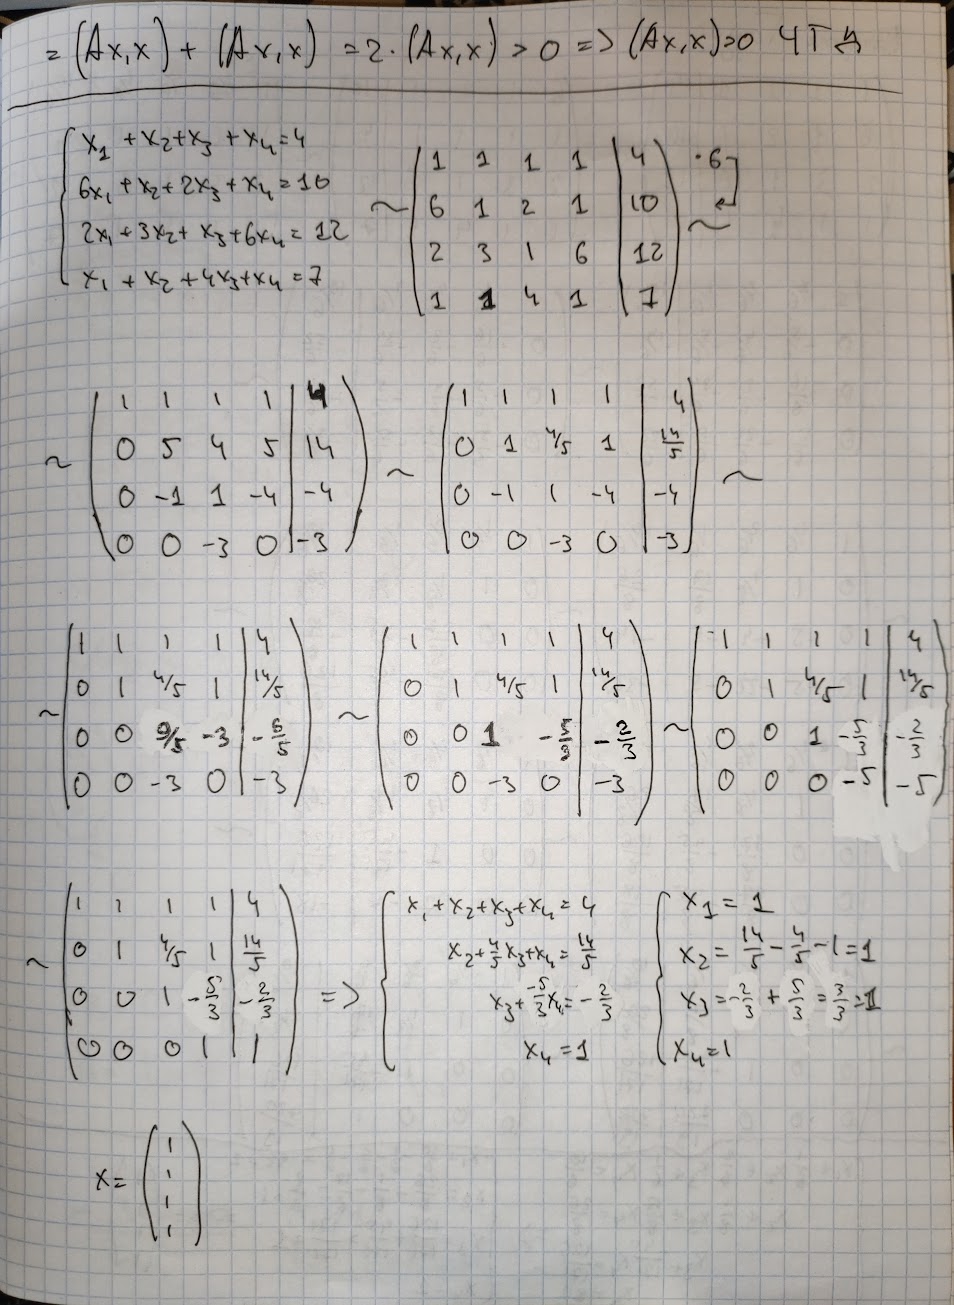 = (Ax,x) + (Ax,x) = 2·(Ax,x) > 0 => (Ax,x)>0 ЧТД
x₁ + x₂ + x₃ + x₄ = 4
6x₁ + x₂ + 2x₃ + x₄ = 10
2x₁ + 3x₂ + x₃ + 6x₄ = 12
x₁ + x₂ + 4x₃ + x₄ = 7
~
1 1 1 1 | 4 ·6
6 1 2 1 | 10
2 3 1 6 | 12
1 1 4 1 | 7
~
~
1 1 1 1 | 4
0 5 4 5 | 14
0 -1 1 -4 | -4
0 0 -3 0 | -3
~
1 1 1 1 | 4
0 1 4/5 1 | 14/5
0 -1 1 -4 | -4
0 0 -3 0 | -3
~
~
1 1 1 1 | 4
0 1 4/5 1 | 14/5
0 0 9/5 -3 | -6/5
0 0 -3 0 | -3
~
1 1 1 1 | 4
0 1 4/5 1 | 14/5
0 0 1 -5/3 | -2/3
0 0 -3 0 | -3
~
1 1 1 1 | 4
0 1 4/5 1 | 14/5
0 0 1 -5/3 | -2/3
0 0 0 -5 | -5
~
1 1 1 1 | 4
0 1 4/5 1 | 14/5
0 0 1 -5/3 | -2/3
0 0 0 1 | 1
=>
x₁ + x₂ + x₃ + x₄ = 4
x₂ + 4/5 x₃ + x₄ = 14/5
x₃ + -5/3 x₄ = -2/3
x₄ = 1
x₁ = 1
x₂ = 14/5 - 4/5 - 1 = 1
x₃ = -2/3 + 5/3 = 3/3 = 1
x₄ = 1
x =
1
1
1
1